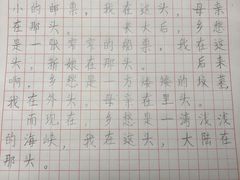 小的邮票，我在这头，母亲
在那头。　　长大后，乡愁
是一张窄窄的船票，我在这
头，新娘在那头。　　后来
啊，乡愁是一方矮矮的坟墓，
我在外头，母亲在里头。
　　而现在，乡愁是一湾浅浅
的海峡，我在这头，大陆在
那头。